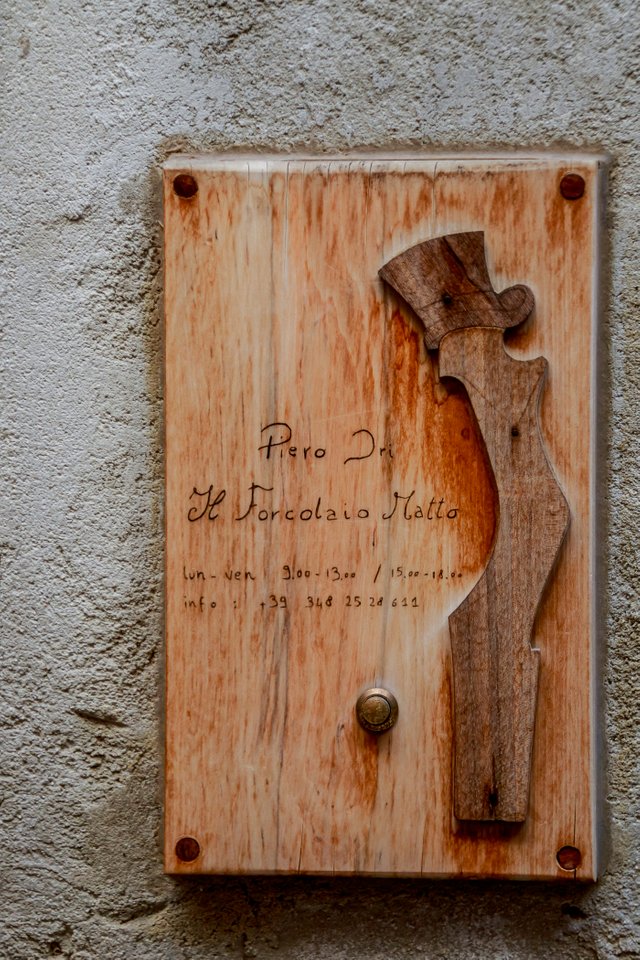 Piero Dri
Il Forcolaio Matto
lun-ven : 9.00-13.00 / 15.00-18.00
info : +39 348 25 28 611